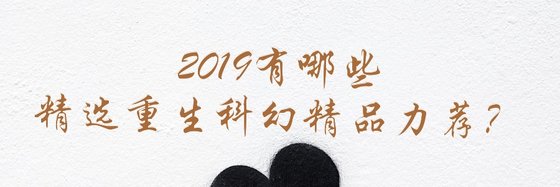 2019有哪些
精选重生科幻精品力荐？